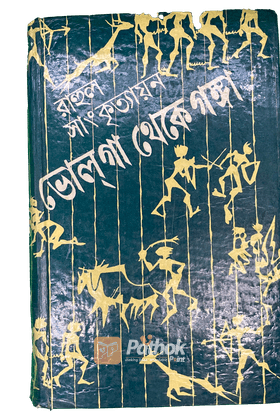 রাহুল
সাংকৃত্যায়ন
ভোল্‌গা থেকে গঙ্গা
Pathok
Point